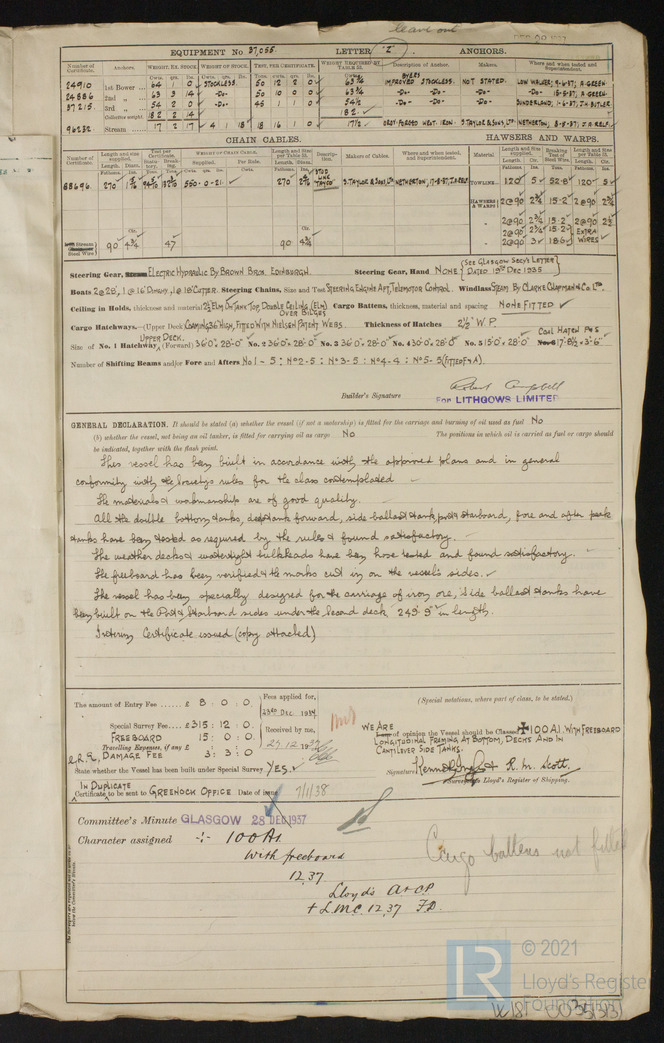 leave out
EQUIPMENT No 37,055. LETTER "Z" ANCHORS.
Number of Certificate. Anchors. WEIGHT, EX. STOCK. WEIGHT OF STOCK. TEST, PER CERTIFICATE. WEIGHT REQUIRED BY TABLE 53. Description of Anchor. Makers. Where and when tested and Superintendent.
Cwts. qrs. lbs. Cwts. qrs. lbs. Tons. cwts. qrs. lbs. Cwts. BYERS
24910 1st Bower 64 1 0 STOCKLESS. 50 12 2 0 63¾ IMPROVED STOCKLESS. NOT STATED. LOW WALKER, 9-6-37, A. GREEN.
24886 2nd „ 63 3 14 -Do- 50 10 0 0 63¾ -Do- -Do- -Do- 15-6-37, A. GREEN.
37215. 3rd „ 54 2 0 -Do- 45 1 1 0 54½ -Do- -Do- SUNDERLAND, 1-6-37, J.H. BUTLER.
Collective weight 182 2 14 182.
96232 Stream 17 2 17 4 1 18 18 16 1 0 17½ ORDY. FORGED WROT. IRON. S. TAYLOR & SONS, LTD NETHERTON, 8-8-37, J.A. RELF.
CHAIN CABLES. HAWSERS AND WARPS.
Number of Certificate. Length and size supplied. Test per Certificate. WEIGHT OF CHAIN CABLE. Length and size per Table 53. Description. Makers of Cables. Where and when tested, and Superintendent. Material Length and Size supplied. Breaking Test of Steel Wire. Length and Size per Table 53.
68696. 270 2⅝ 550-0-21 270 2⅝ STUD LINK TAYCO S. TAYLOR & SONS LTD NETHERTON, 17-8-37, J.A. RELF TOWLINE 120 5 52·8 120 5
HAWSERS & WARPS 2@90 2¾ 15·2 2@90 2¾
„ 2@90 2¾ 15·2 2@90 2½
2@90 2¾ 15·2 EXTRA
„ 2@90 3 18·6 WIRES
Stream Steel Wire) 90 4¾ 47 90 4¾
(SEE GLASGOW SECY'S LETTER
Steering Gear, Steam ELECTRIC HYDRAULIC BY BROWN BROS. EDINBURGH. Steering Gear, Hand NONE DATED 19TH DEC 1935
Boats 2@28', 1@16' DINGHY, 1@18' CUTTER. Steering Chains, Size and Test STEERING ENGINE AFT, TELEMOTOR CONTROL. Windlass STEAM BY CLARKE CHAPMAN & CO LTD.
Ceiling in Holds, thickness and material 2½" ELM ON TANK TOP, DOUBLE CEILING (ELM) OVER BILGES Cargo Battens, thickness, material and spacing NONE FITTED
Cargo Hatchways.—(Upper Deck) COAMING 36" HIGH, FITTED WITH NIELSEN PATENT WEBS. Thickness of Hatches 2½" W.P.
UPPER DECK. COAL HATCH P&S
Size of No. 1 Hatchway (Forward) 36'0" × 28'-0" No. 2 36'0" × 28'-0" No. 3 36'0" × 28'-0" No. 4 30'0" × 28'-0" No. 5 15'0" × 28'-0" No. 6 17'-8½" × 3'-6"
Number of Shifting Beams and/or Fore and Afters No 1 - 5 ; No 2-5 ; No 3-5 ; No 4-4 ; No 5-5 (FITTED F & A).
Builder's Signature Robert Campbell
FOR LITHGOWS LIMITED
GENERAL DECLARATION. It should be stated (a) whether the vessel (if not a motorship) is fitted for the carriage and burning of oil used as fuel No
(b) whether the vessel, not being an oil tanker, is fitted for carrying oil as cargo No The positions in which oil is carried as fuel or cargo should
be indicated, together with the flash point.
This vessel has been built in accordance with the approved plans and in general
conformity with the Society's rules for the class contemplated
The materials & workmanship are of good quality.
All the double bottom tanks, deep tank forward, side ballast tanks, port & starboard, fore and after peak
tanks have been tested as required by the rules & found satisfactory.
The weather decks & watertight bulkheads have been hose tested and found satisfactory.
The freeboard has been verified & the marks cut in on the vessel's sides.
The vessel has been specially designed for the carriage of iron ore, side ballast tanks have
been built on the Port & Starboard sides under the second deck, 249' 9" in length.
Interim Certificate issued (copy attached)
The amount of Entry Fee £ 8 : 0 : 0 Fees applied for,
23RD DEC 1937
Special Survey Fee £315 : 12 : 0
FREEBOARD 15 : 0 : 0 Received by me,
Travelling Expenses, if any £ : : 29.12.1937
DAMAGE FEE 3 : 3 : 0
State whether the Vessel has been built under Special Survey YES.
(Special notations, where part of class, to be stated.)
WE ARE of opinion the Vessel should be Classed ✠100A1. WITH FREEBOARD
LONGITUDINAL FRAMING AT BOTTOM, DECKS AND IN
CANTILEVER SIDE TANKS.
Signature R. M. Scott.
Surveyor to Lloyd's Register of Shipping.
IN DUPLICATE
Certificate to be sent to GREENOCK OFFICE Date of issue 7/1/38
Committee's Minute GLASGOW 28 DEC 1937
Character assigned 100A1.
With freeboard
12.37
Lloyd's A & CP.
+ L.M.C. 12.37 F.D.
Cargo battens not fitted
© 2021
Lloyd's Register
FOUNDATION